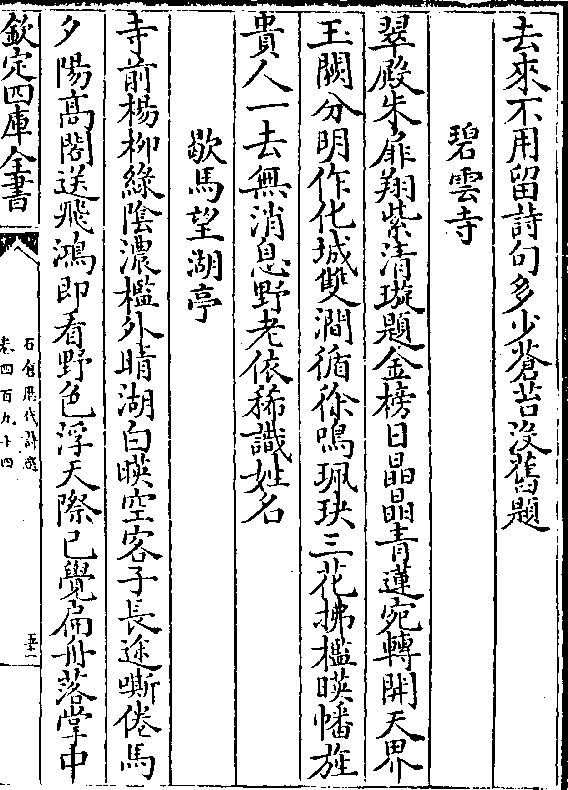 去來不用留詩句多少蒼苔没舊題
碧雲寺
翠殿朱扉翔紫清璇題金榜日晶晶青蓮宛轉開天界
玉闕分明作化城雙澗循徐鳴珮玦三花拂檻暎幡旌
貴人一去無消息野老依稀識姓名
歇馬望湖亭
寺前楊柳緑陰濃檻外晴湖白暎空客子長途嘶倦馬
夕陽高閣送飛鴻即看野色浮天際已覺扁舟落掌中
欽定四庫全書
石倉歴代詩選
卷四百九十四